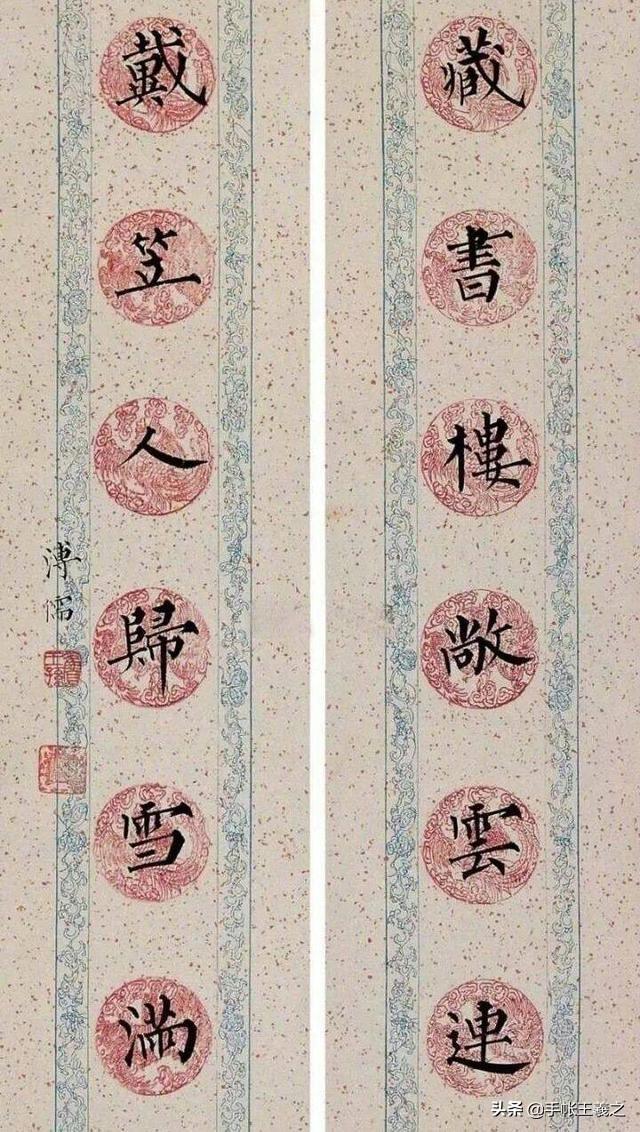 藏書樓敞雲連
戴笠人歸雪滿
溥儒
头条 @手帐王羲之